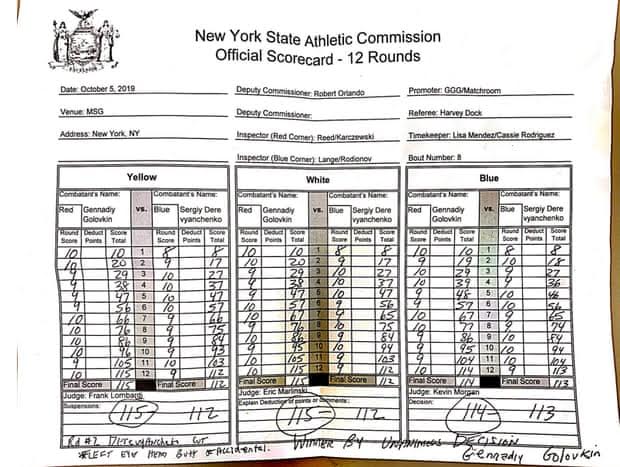 New York State Athletic Commission
Official Scorecard - 12 Rounds
Date: October 5, 2019 Deputy Commissioner: Robert Orlando Promoter: GGG/Matchroom
Venue: MSG Deputy Commissioner: Referee: Harvey Dock
Address: New York, NY Inspector (Red Corner): Reed/Karczewski Timekeeper: Lisa Mendez/Cassie Rodriguez
Inspector (Blue Corner): Lange/Rodionov Bout Number: 8
Yellow White Blue
Combatant's Name: Combatant's Name: Combatant's Name: Combatant's Name: Combatant's Name: Combatant's Name:
Red Gennady Golovkin vs. Blue Sergiy Dere vyanchenko Red Gennady Golovkin vs. Blue Sergiy Dere vyanchenko Red Gennady Golovkin vs. Blue Sergiy Dere vyanchenko
Round Score Deduct Points Score Total Round Score Deduct Points Score Total Round Score Deduct Points Score Total Round Score Deduct Points Score Total Round Score Deduct Points Score Total Round Score Deduct Points Score Total
10 10 1 8 8 10 10 1 8 8 10 10 1 8 8
10 20 2 9 17 10 20 2 9 17 9 19 2 10 18
9 29 3 10 27 9 29 3 10 27 10 29 3 9 27
9 38 4 10 37 9 38 4 10 37 10 39 4 9 36
9 47 5 10 47 9 47 5 10 47 9 48 5 10 46
9 56 6 10 57 10 57 6 9 56 9 57 6 10 56
10 66 7 9 66 10 67 7 9 65 10 67 7 9 65
10 76 8 9 75 9 76 8 10 75 10 77 8 9 74
10 86 9 9 84 10 86 9 9 84 9 86 9 10 84
10 96 10 9 93 9 95 10 10 94 9 95 10 10 94
9 105 11 10 103 10 105 11 9 103 9 104 11 10 104
10 115 12 9 112 10 115 12 9 112 10 114 12 9 113
Final Score 115 Final Score 112 Final Score 115 Final Score 112 Final Score 114 Final Score 113
Judge: Frank Lombardi Judge: Eric Marlinski Judge: Kevin Morgan
Suspensions: Explain Deduction of points or comments: Decision:
115 112 115 112 114 113
Rd #2 Derevyanchenko cut
Winner By Unanimous Decision
Eye Head Butt Accidental.
Gennadiy Golovkin